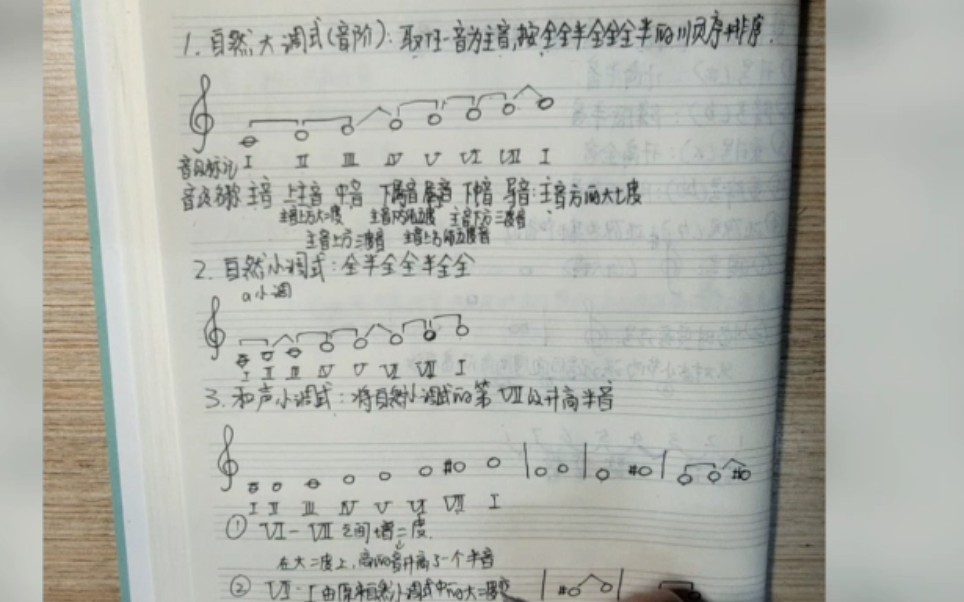 1. 自然大调式(音阶): 取任一音为主音,按全全半全全全半的顺序排序.
I II III IV V VI VII I
音级标记
音级名称 主音 上主音 中音 下属音 属音 下中音 导音:主音方的大七度
主音上方大二度 主音下方纯五度 主音下方三度音
主音上方三度音 主音上方纯五度音
2. 自然小调式: 全半全全半全全
a小调
I II III IV V VI VII I
3. 和声小调式: 将自然小调式的第VII级升高半音
I II III IV V VI VII I
① VI-VII 之间增二度.
在大二度上,高的音升高了一个半音
② VII-I由原来自然小调式中的大二度变